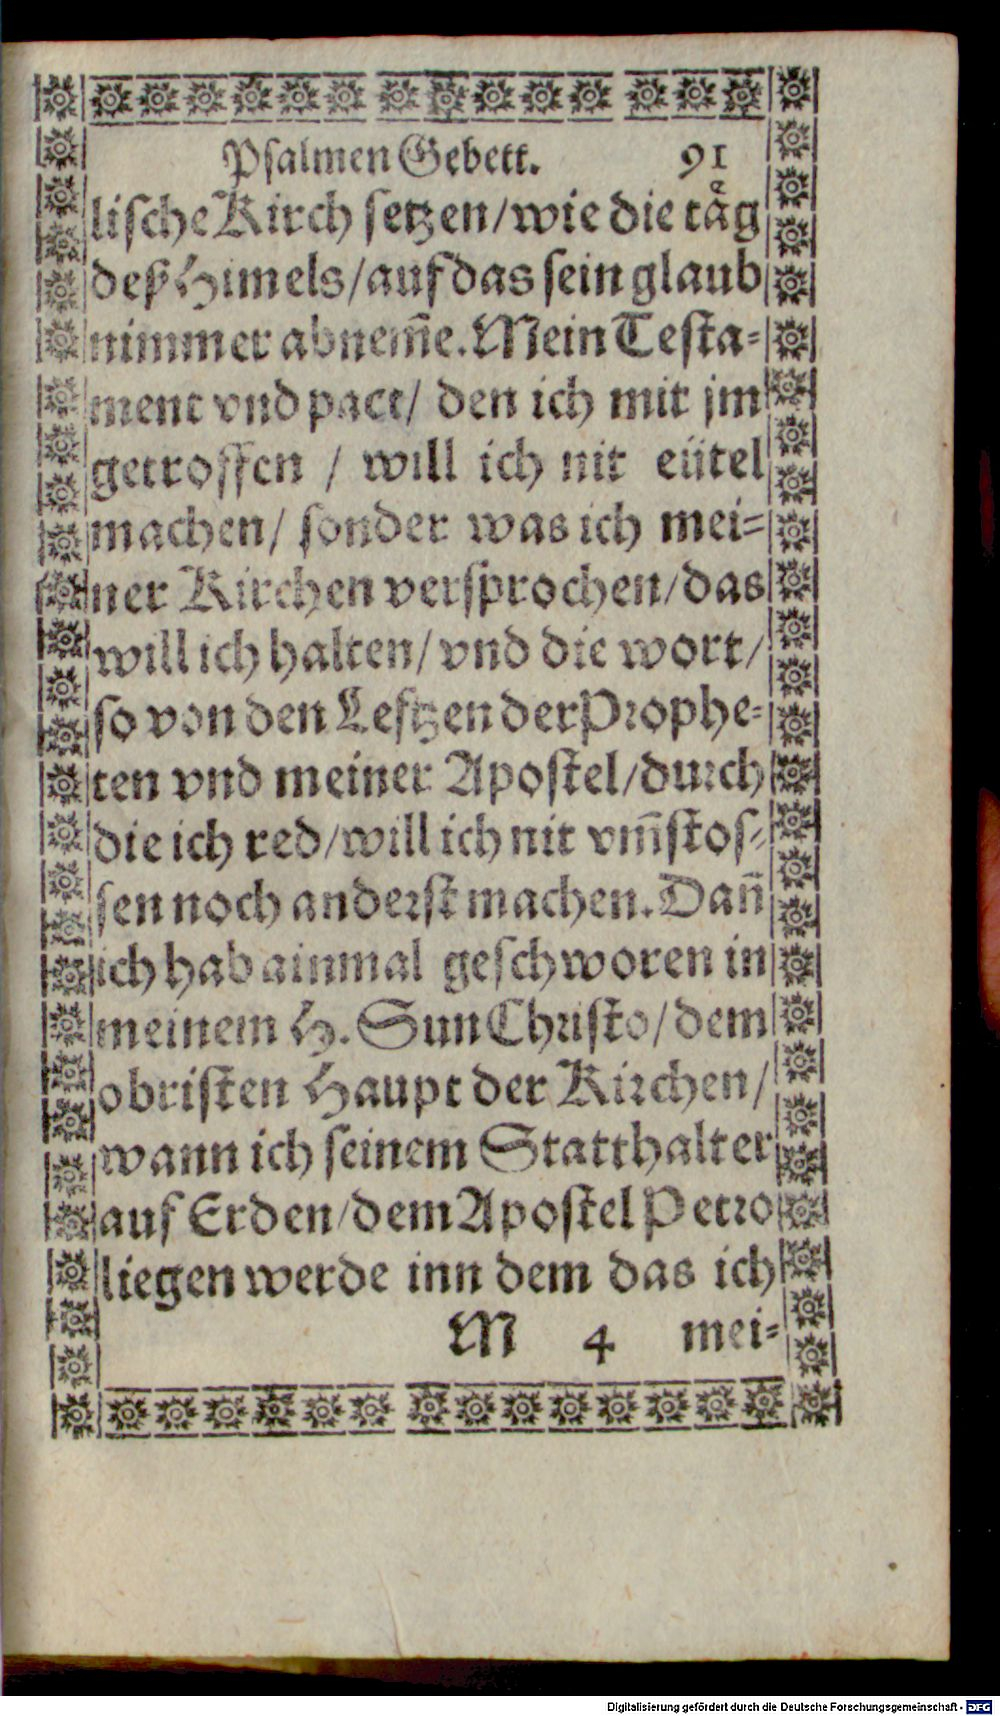 Psalmen Gebett. 91
lische Kirch setzen/wie die taͤg
deß Himels/auf das sein glaub
nimmer abnem̃e. Mein Testa-
ment vnd pact/ den ich mit jm
getroffen / will ich nit eütel
machen/ sonder was ich mei-
ner Kirchen versprochen/das
will ich halten/ vnd die wort/
so von den Lefftzen der Prophe-
ten vnd meiner Apostel/durch
die ich red/will ich nit vm̃stos-
sen noch anderst machen. Dañ
ich hab ainmal geschworen in
meinem H. Sun Christo/ dem
obristen Haupt der Kirchen/
wann ich seinem Statthalter
auf Erden/dem Apostel Petro
liegen werde inn dem das ich
M 4 mei-
Digitalisierung gefördert durch die Deutsche Forschungsgemeinschaft - DFG